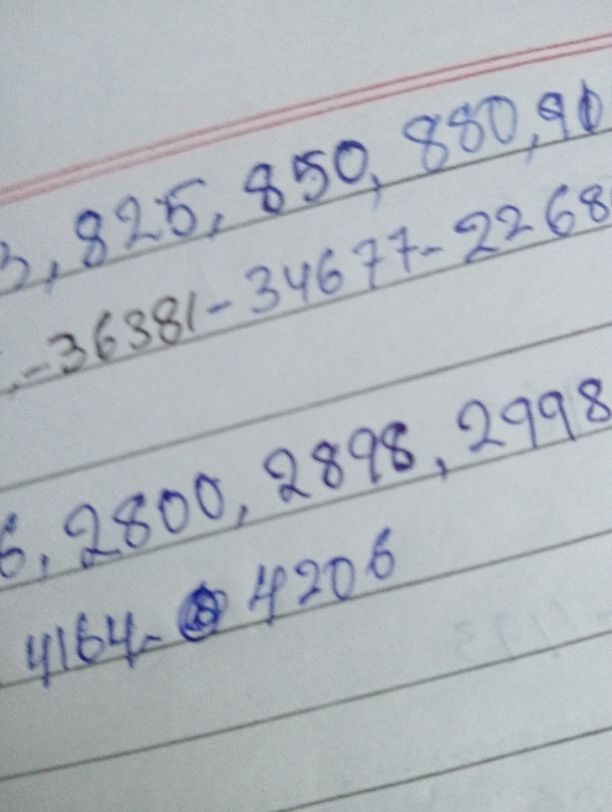 3, 825, 850, 880, 90
-36381-34677-2268
6, 2800, 2898, 2998
4164- 4206